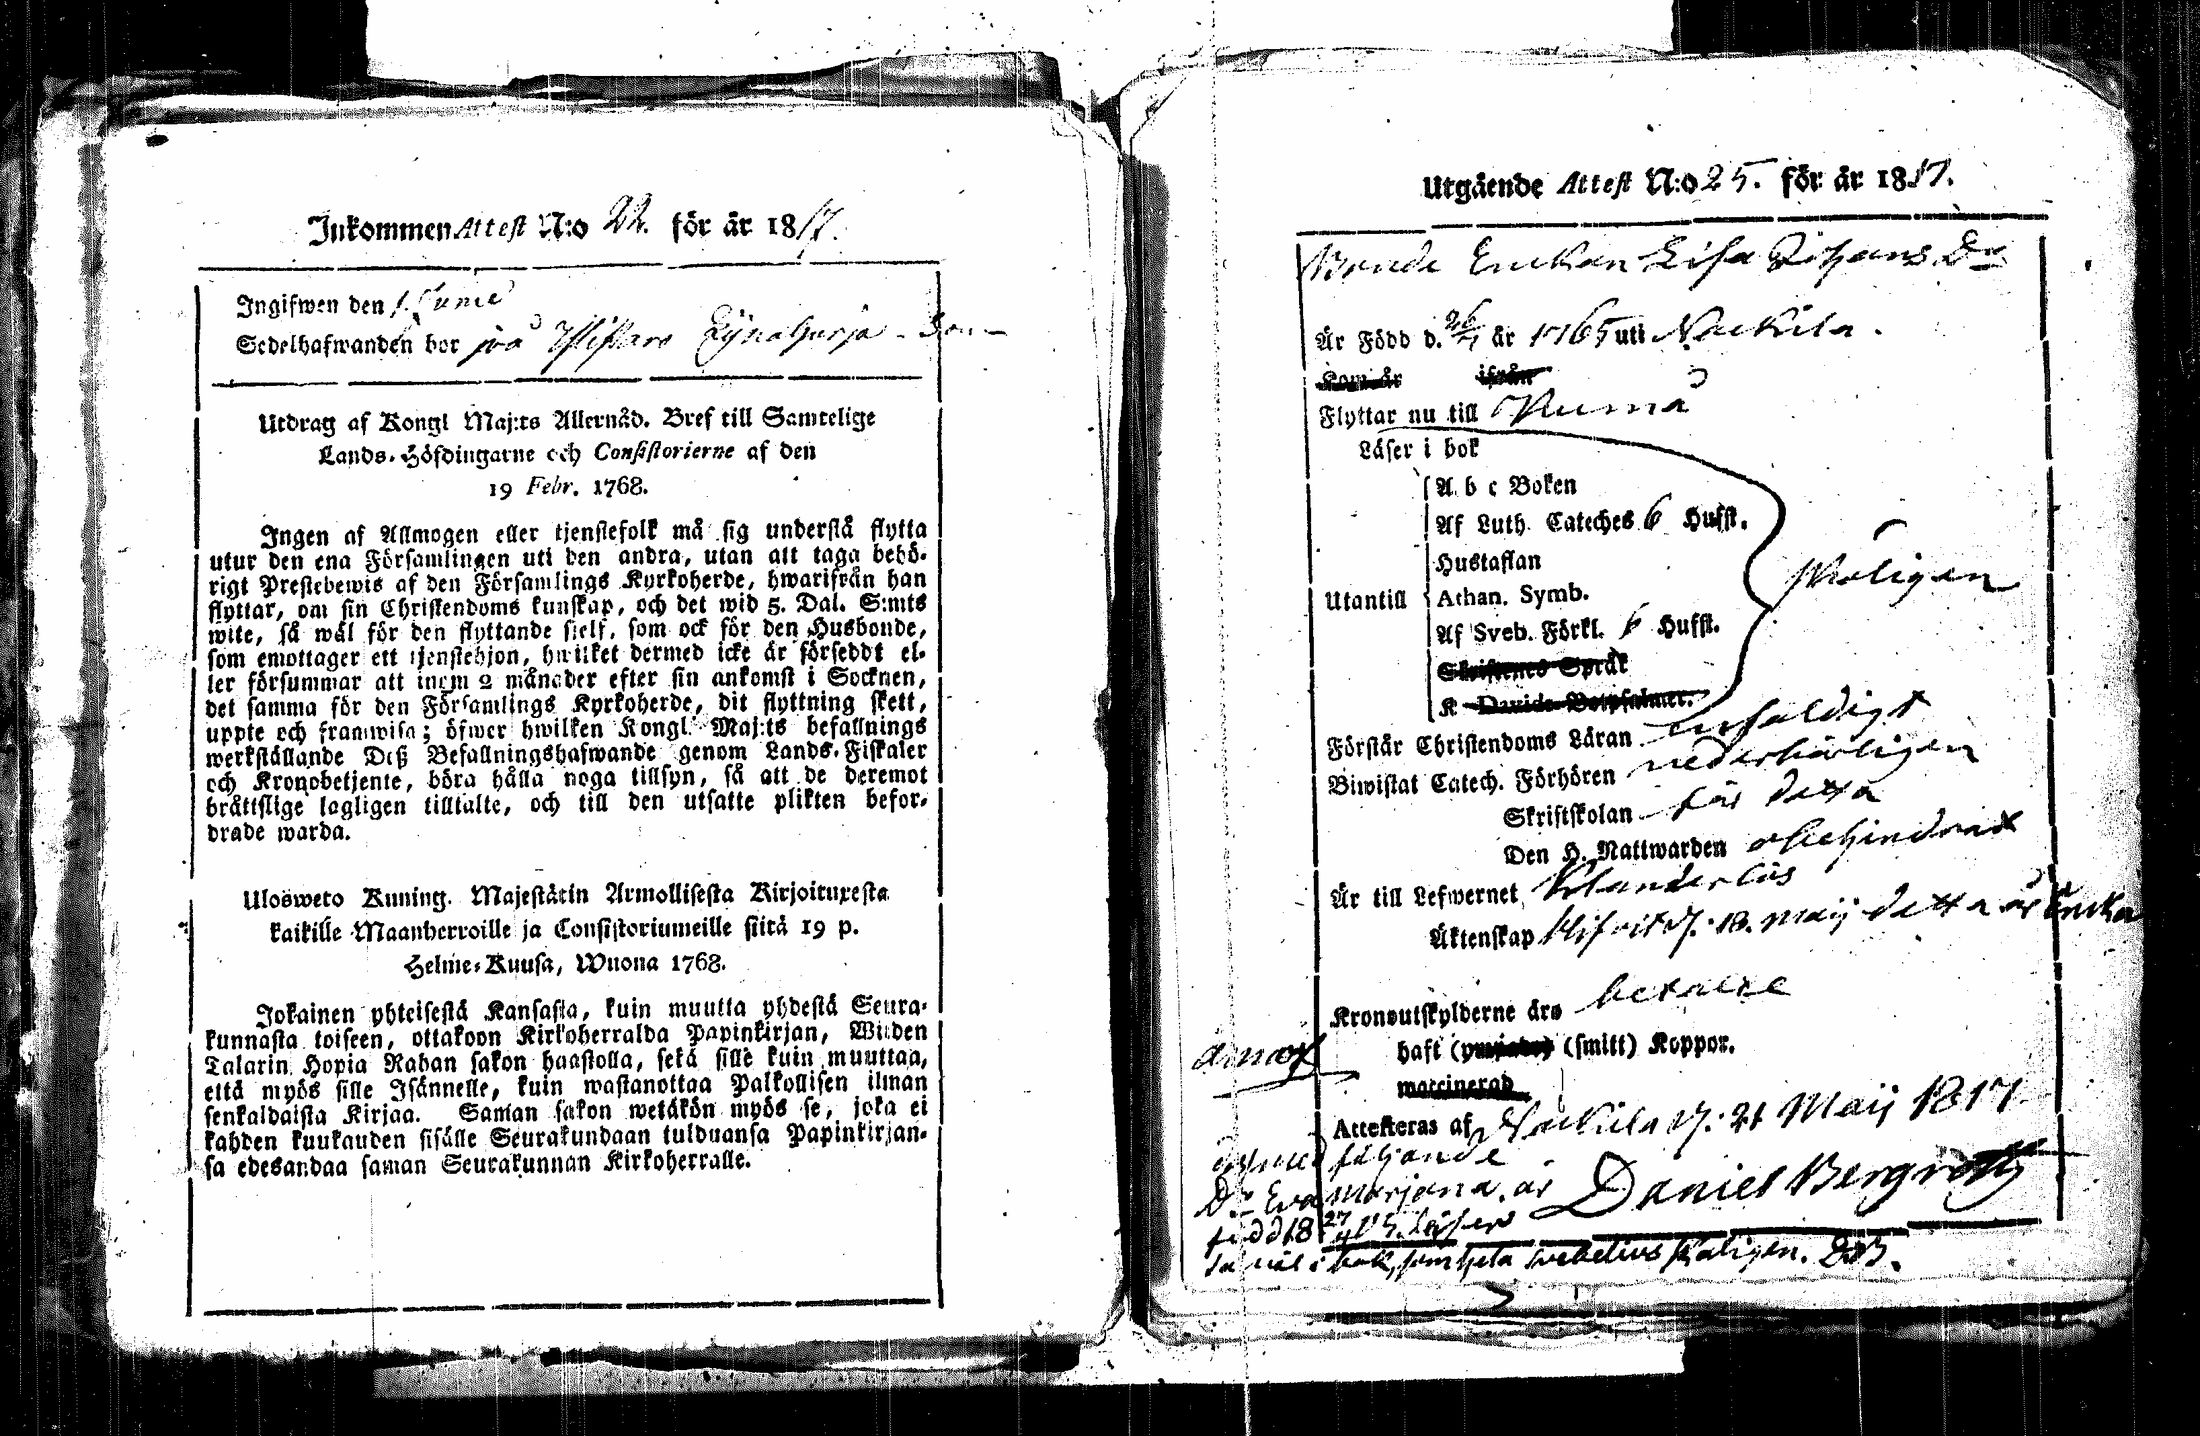 Inkommen Attest N:o 22. för år 1817.
Ingifwen den 1. Junie
Sedelhafwanden bor på
Utdrag af Kongl Maj:ts Allernåd. Bref till Samtelige
Lands-Höfdingarne och Consistorierne af den
19 Febr. 1768.
Ingen af Allmogen eller tjenstefolk må sig understå flytta
utur den ena Församlingen uti den andra, utan att taga behö-
rigt Prestebewis af den Församlings Kyrkoherde, hwarifrån han
flyttar, om sin Christendoms kunskap, och det wid 5. Dal. S:mts
wite, så wäl för den flyttande sielf, som ock för den Husbonde,
som emottager ett tjenstehjon, hwilket dermed icke är försedt el-
ler försummar att inom 2 månader efter sin ankomst i Socknen,
det samma för den Församlings Kyrkoherde, dit flyttning skett,
uppte och framwisa; öfwer hwilken Kongl. Maj:ts befallnings
werkställande Deß Befallningshafwande genom Lands-Fiskaler
och Kronobetjente, böra hålla noga tillsyn, så att de deremot
bråttslige lagligen tilltalte, och till den utsatte plikten befor-
drade warda.
Ulosweto Kuning. Majestätin Armollisesta Kirjoituxesta
kaikille Maanherroille ja Consistoriumeille siitä 19 p.
Helme-Kuusa, Wuona 1768.
Jokainen yhteisestä Kansasta, kuin muutta yhdestä Seura-
kunnasta toiseen, ottakoon Kirkoherralda Papinkirjan, Wiiden
Talarin Hopia Rahan sakon haastolla, sekä sille kuin muuttaa,
että myös sille Isännelle, kuin wastanottaa Palkollisen ilman
senkaldaista Kirjaa. Saman sakon wetäkön myös se, joka ei
kahden kuukauden sisälle Seurakundaan tulduansa Papinkirjan-
sa edesandaa saman Seurakunnan Kirkoherralle.
Utgående Attest N:o 25. för år 1817.
Bonde Enckan Lisa Johans Dr
Är Född d. 26/7 år 1765 uti Nackila.
Kom år ifrån
Flyttar nu till Kumå
Läser i bok
A b c Boken
Af Luth. Cateches 6 Hufst.
Hustaflan
Utantill Athan. Symb.
Af Sveb. Förkl. 6 Hufst.
Skriftenes Språk
K Davids Botpsalmer.
Förstår Christendoms Läran enfaldigt
Biwistat Catech. Förhören vederbörligen
Skriftskolan för detta
Den H. Nattwarden obehindrat
Är till Lefwernet klanderlös
Äktenskap d. 18. Maij detta år Encka
Kronoutskylderne äro betalte
haft (smitt) Koppor.
waccinerad
Attesteras af Nackila d. 21 Maij 1817
medföljande
Dr Eva Marjana, är Daniel Bergroth
född
väl i bok, Svebelius D.B.